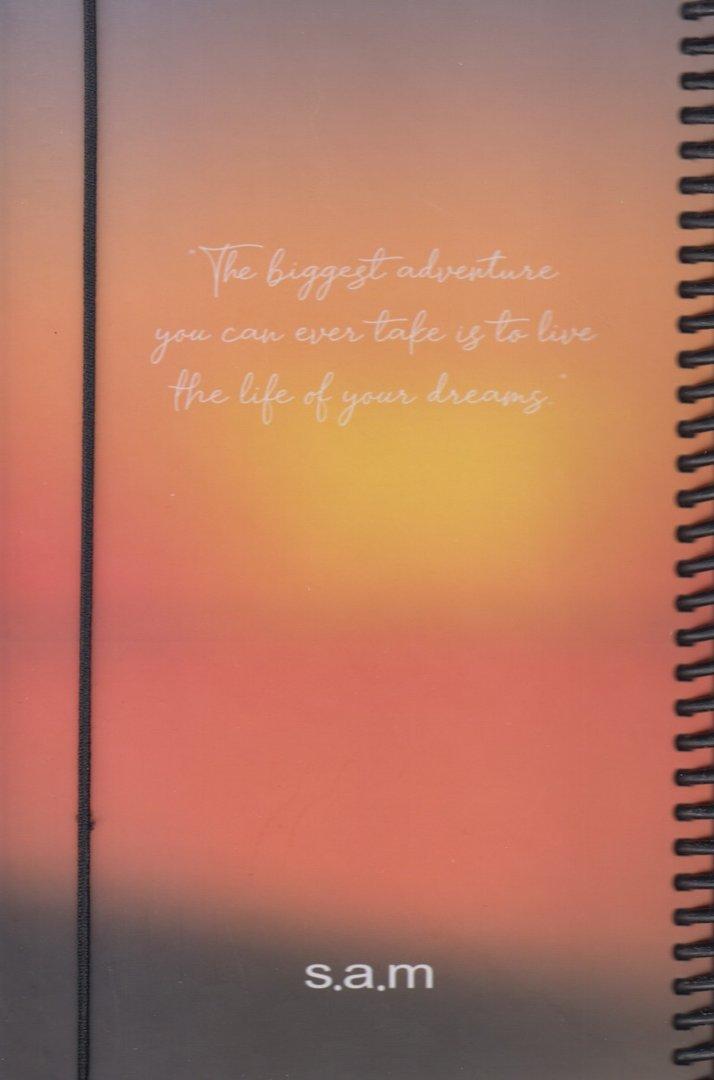 "The biggest adventure
you can ever take is to live
the life of your dreams."
s.a.m